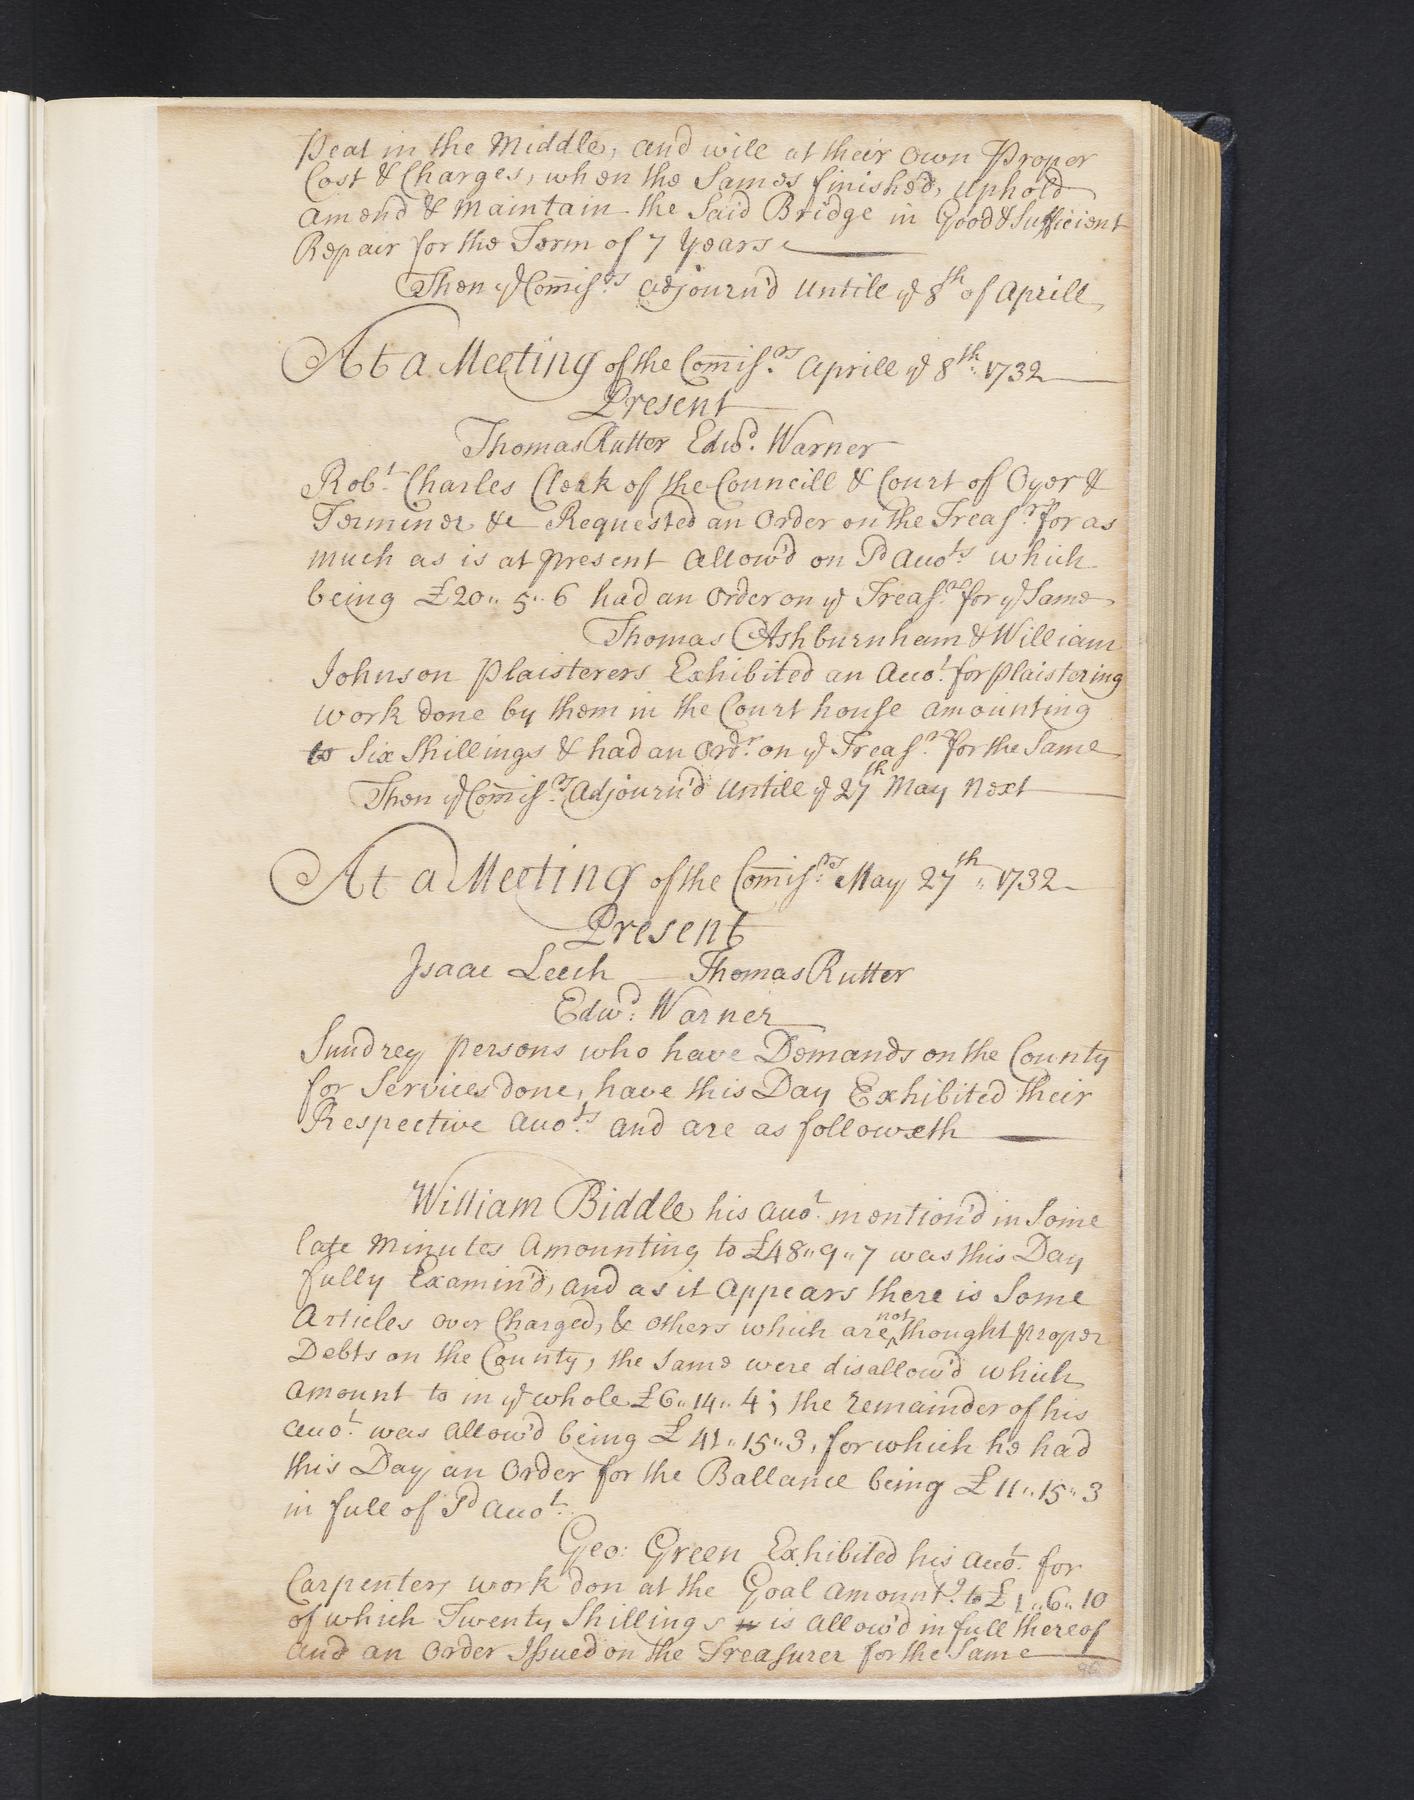 Peat in the Middle, and will at their own Proper
Cost & Charges, when the Same's finished, uphold
amend & Maintain the Said Bridge in Good & Sufficient
Repair for the Term of 7 Years
Then ye Comisrs adjourn'd Untill ye 8th of Aprill
At a Meeting of the Comisrs Aprill ye 8th 1732
Present
Thomas Rutter Edwd. Warner
Robt Charles Clerk of the Councill & Court of Oyer &
Terminer &c Requested an Order on the Treasrr for as
much as is at present allow'd on Sd Accots which
being £20,, 5,, 6 had an Order on ye Treasrr for ye Same
Thomas Ashburnham & William
Johnson Plaisterers Exhibited an Accot. for Plaistering
work done by them in the Court house amounting
to Six Shillings & had an Ordr on ye Treasrr for the Same
Then ye Comisrs Adjourn'd Untill ye 27th May Next
At a Meeting of the Comisrs May 27th,, 1732
Present
Isaac Leech Thomas Rutter
Edwd: Warner
Sundrey persons who have Demands on the County
for Services done, have this Day Exhibited their
Respective Accots. and are as followeth
William Biddle his Accot. mention'd in Some
late Minutes Amounting to £48,, 9,, 7 was this Day
fully Examin'd, and as it appears there is Some
Articles over Charged, & others which are not thought proper
Debts on the County, the Same were disallow'd which
amount to in ye whole £6,, 14,, 4; the remainder of his
Accot. was allow'd being £41,, 15,, 3, for which he had
this Day an Order for the Ballance being £11,, 15,, 3
in full of Sd Accot.
Geo: Green Exhibited his Accot. for
Carpenters work don at the Goal Amountg. to £1,, 6,, 10
of which Twenty Shillings is allow'd in full thereof
and an Order Issued on the Treasurer for the Same